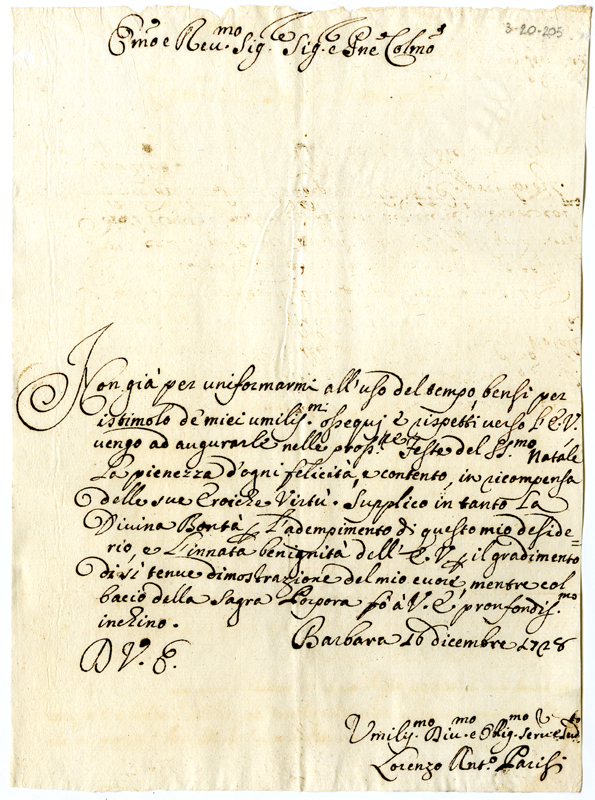 3-20-205
Em̃o e Reu.mo Sig.re Sig.re e Pñe Colmo
Non già per uniformarmi all'uso del tempo, bensì per
istimolo de miei umilis.mi ossequj è rispetti verso l'E.V.
vengo ad augurarle nelle pross.e Feste del SS.mo Natale
La pienezza d'ogni felicità, e contento, in ricompensa
delle sue Eroiche Virtù. Supplico in tanto La
Divina Bontà p L'adempimento di questo mio deside=
rio, e L'innata benignità dell'E.V. p il gradimento
di sì tenue dimostrazione del mio cuore, mentre col
bacio della Sagra Porpora fò à V.E. profondis.mo
inchino.
Barbara 16 dicembre 1728
D V. E.
Vmilis.mo Diu.mo e Oblig.mo Seru.e
Lorenzo Ant.o Parisi